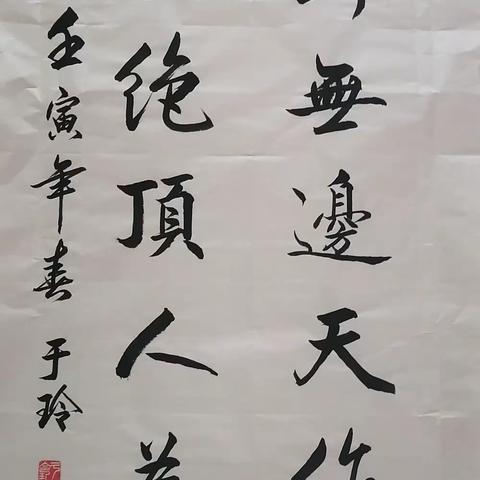 無邊天作
絶頂人為
壬寅年春于玲